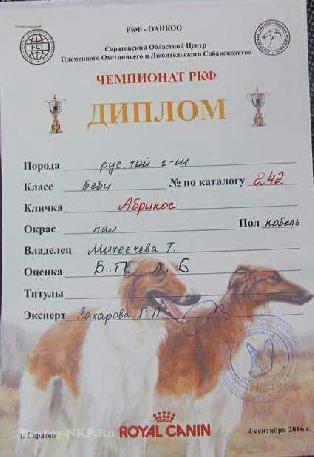 РКФ - ОАНКОО
Саратовский Областной Центр
Племенного Охотничьего и Любительского Собаководства
ЧЕМПИОНАТ РКФ
ДИПЛОМ
Порода рус. той г-ш
Класс беби № по каталогу 242
Кличка Абрикос
Окрас пал Пол кобель
Владелец Т.
Оценка В.П. Л.Б
Титулы
Эксперт Захарова Г.Л.
г. Саратов
ROYAL CANIN
4 сентября 2016 г.